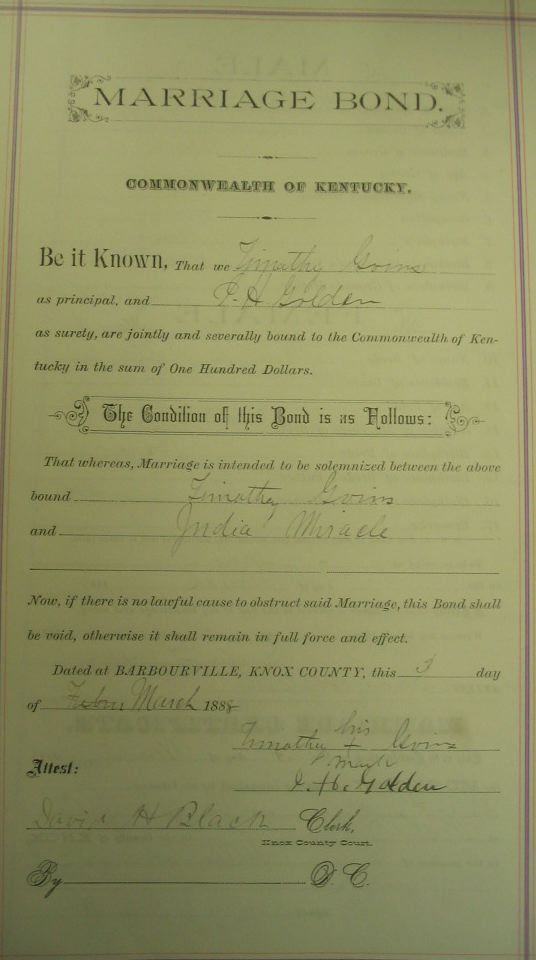 MARRIAGE BOND.
COMMONWEALTH OF KENTUCKY.
Be it Known, That we Timothy Goins
as principal, and Golden
as surety, are jointly and severally bound to the Commonwealth of Ken-
tucky in the sum of One Hundred Dollars.
The Condition of this Bond is as Follows:
That whereas, Marriage is intended to be solemnized between the above
bound Timothy Goins
and India Miracle
Now, if there is no lawful cause to obstruct said Marriage, this Bond shall
be void, otherwise it shall remain in full force and effect.
Dated at BARBOURVILLE, KNOX COUNTY, this 3 day
of March 1888
his
Timothy + Goins
mark
Attest: Golden
David H Black Clerk,
Knox County Court.
By D. C.